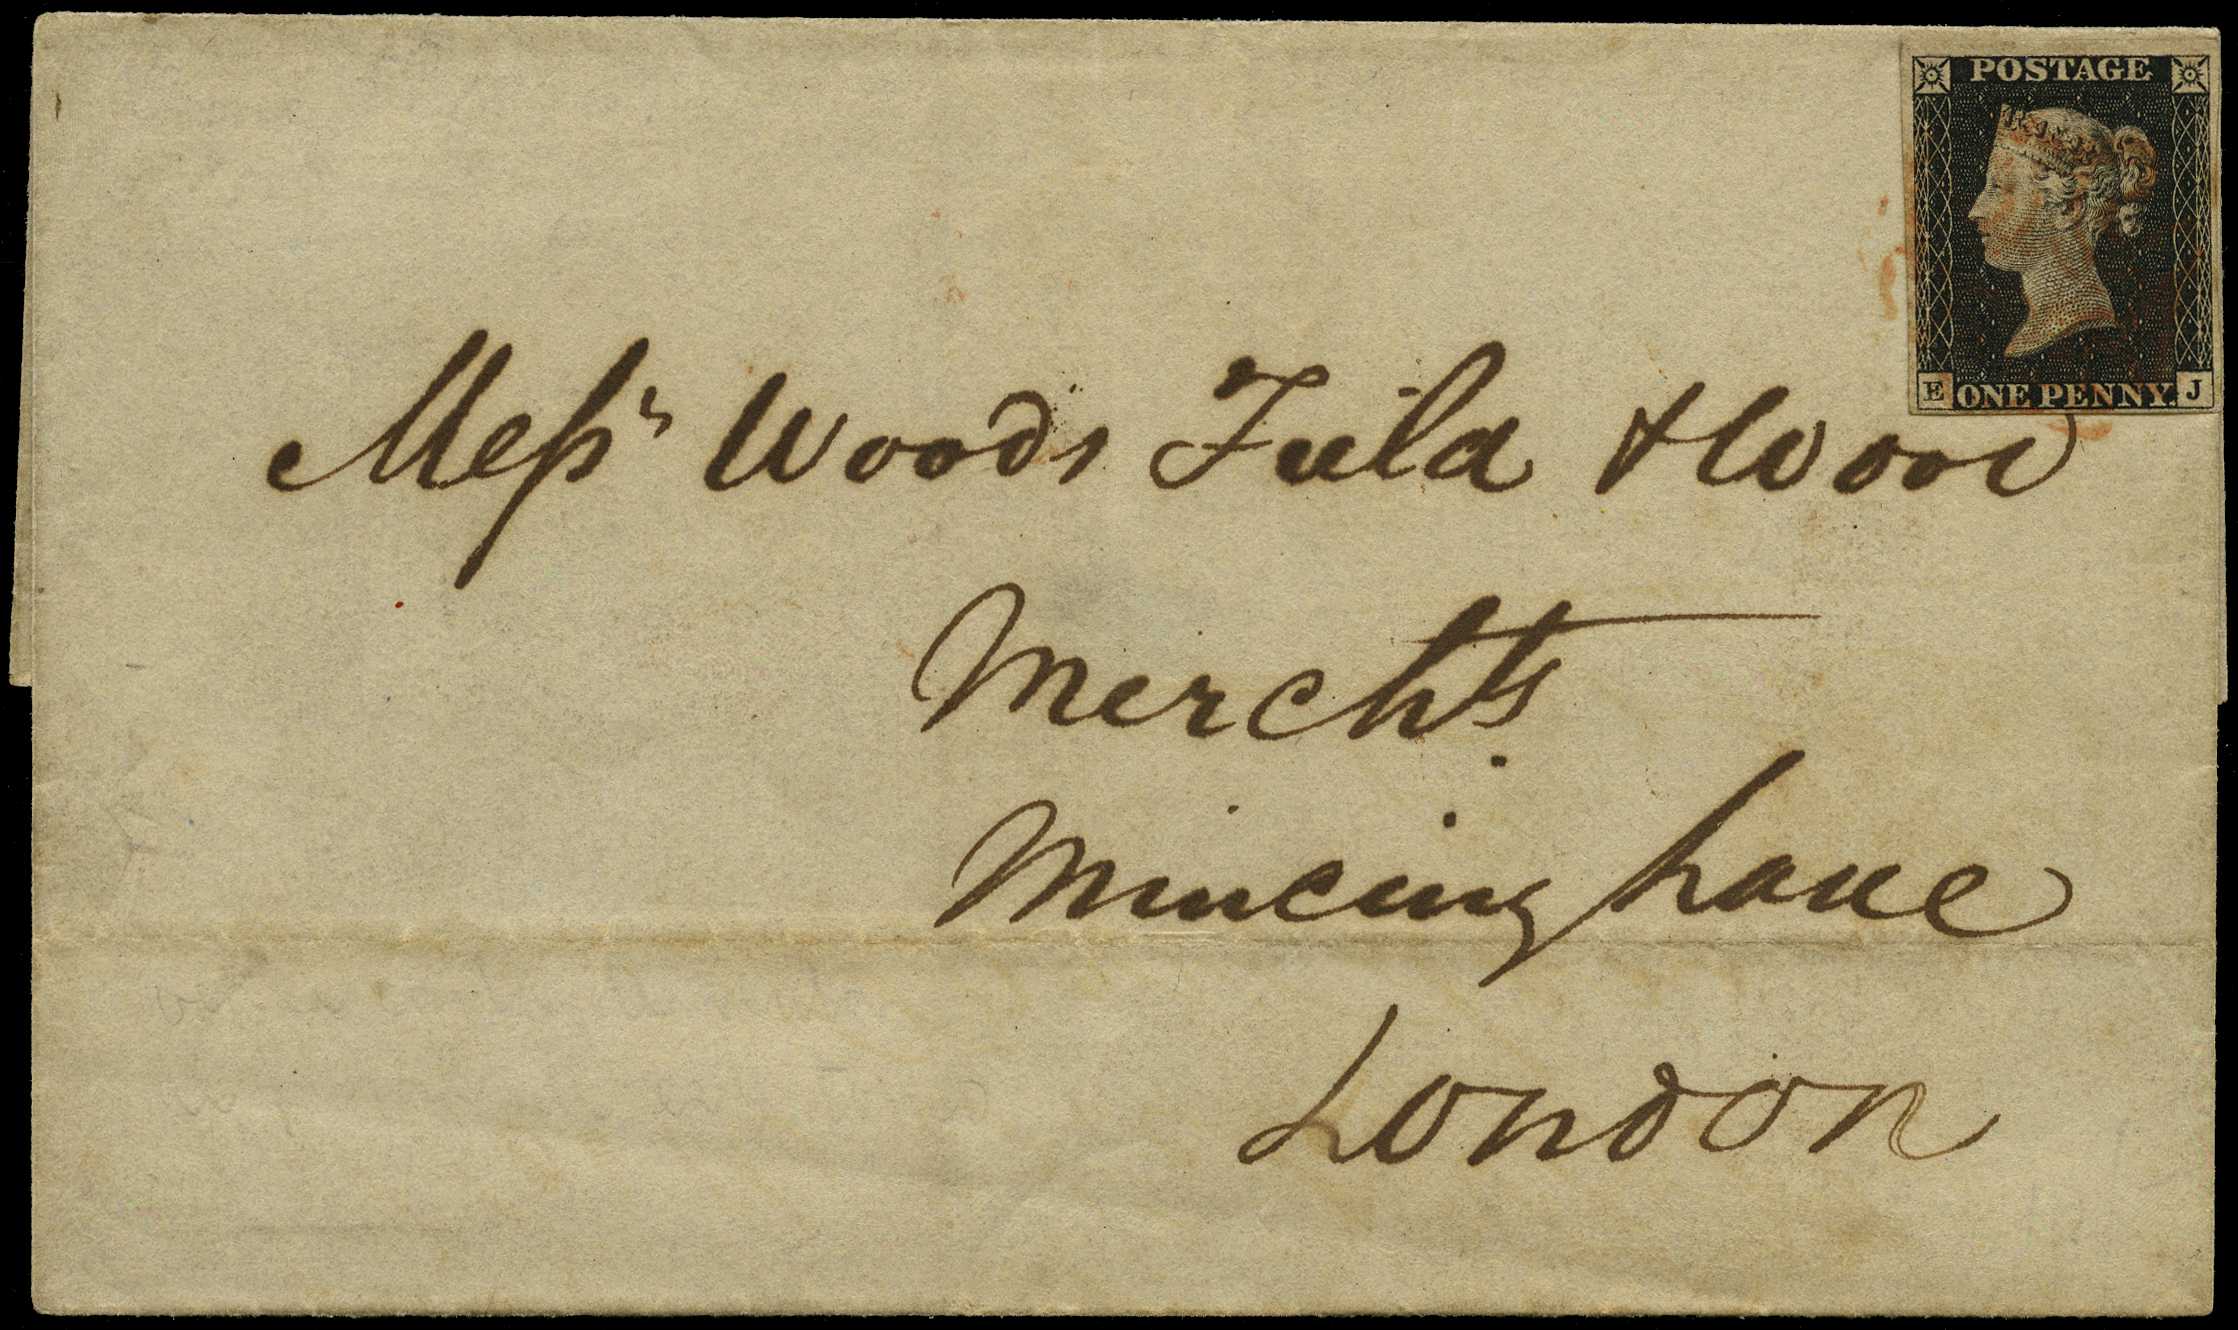 POSTAGE
E ONE PENNY. J
Messrs Woods Field & Wood
Merchts
Mincing Lane
London